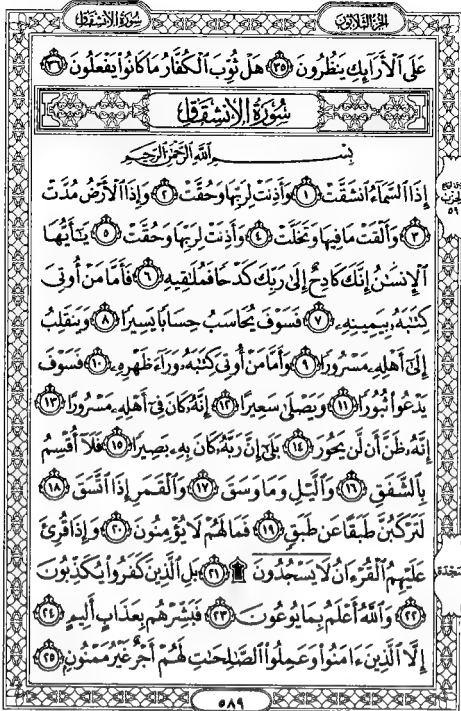 سُورَةُ الِانشِقَاقِ الجُزْءُ الثَّلَاثُونَ
عَلَى ٱلْأَرَآئِكِ يَنظُرُونَ ٣٥ هَلْ ثُوِّبَ ٱلْكُفَّارُ مَا كَانُوا۟ يَفْعَلُونَ ٣٦
سُورَةُ الِانشِقَاقِ
بِسْمِ ٱللَّهِ ٱلرَّحْمَٰنِ ٱلرَّحِيمِ
إِذَا ٱلسَّمَآءُ ٱنشَقَّتْ ١ وَأَذِنَتْ لِرَبِّهَا وَحُقَّتْ ٢ وَإِذَا ٱلْأَرْضُ مُدَّتْ
٣ وَأَلْقَتْ مَا فِيهَا وَتَخَلَّتْ ٤ وَأَذِنَتْ لِرَبِّهَا وَحُقَّتْ ٥ يَٰٓأَيُّهَا
ٱلْإِنسَٰنُ إِنَّكَ كَادِحٌ إِلَىٰ رَبِّكَ كَدْحًا فَمُلَٰقِيهِ ٦ فَأَمَّا مَنْ أُوتِىَ
كِتَٰبَهُۥ بِيَمِينِهِۦ ٧ فَسَوْفَ يُحَاسَبُ حِسَابًا يَسِيرًا ٨ وَيَنقَلِبُ
إِلَىٰٓ أَهْلِهِۦ مَسْرُورًا ٩ وَأَمَّا مَنْ أُوتِىَ كِتَٰبَهُۥ وَرَآءَ ظَهْرِهِۦ ١٠ فَسَوْفَ
يَدْعُوا۟ ثُبُورًا ١١ وَيَصْلَىٰ سَعِيرًا ١٢ إِنَّهُۥ كَانَ فِىٓ أَهْلِهِۦ مَسْرُورًا ١٣
إِنَّهُۥ ظَنَّ أَن لَّن يَحُورَ ١٤ بَلَىٰٓ إِنَّ رَبَّهُۥ كَانَ بِهِۦ بَصِيرًا ١٥ فَلَآ أُقْسِمُ
بِٱلشَّفَقِ ١٦ وَٱلَّيْلِ وَمَا وَسَقَ ١٧ وَٱلْقَمَرِ إِذَا ٱتَّسَقَ ١٨
لَتَرْكَبُنَّ طَبَقًا عَن طَبَقٍ ١٩ فَمَا لَهُمْ لَا يُؤْمِنُونَ ٢٠ وَإِذَا قُرِئَ
عَلَيْهِمُ ٱلْقُرْءَانُ لَا يَسْجُدُونَ ۩ ٢١ بَلِ ٱلَّذِينَ كَفَرُوا۟ يُكَذِّبُونَ
٢٢ وَٱللَّهُ أَعْلَمُ بِمَا يُوعُونَ ٢٣ فَبَشِّرْهُم بِعَذَابٍ أَلِيمٍ ٢٤
إِلَّا ٱلَّذِينَ ءَامَنُوا۟ وَعَمِلُوا۟ ٱلصَّٰلِحَٰتِ لَهُمْ أَجْرٌ غَيْرُ مَمْنُونٍۭ ٢٥
٥٨٩
الحزب
٥٩
سجدة